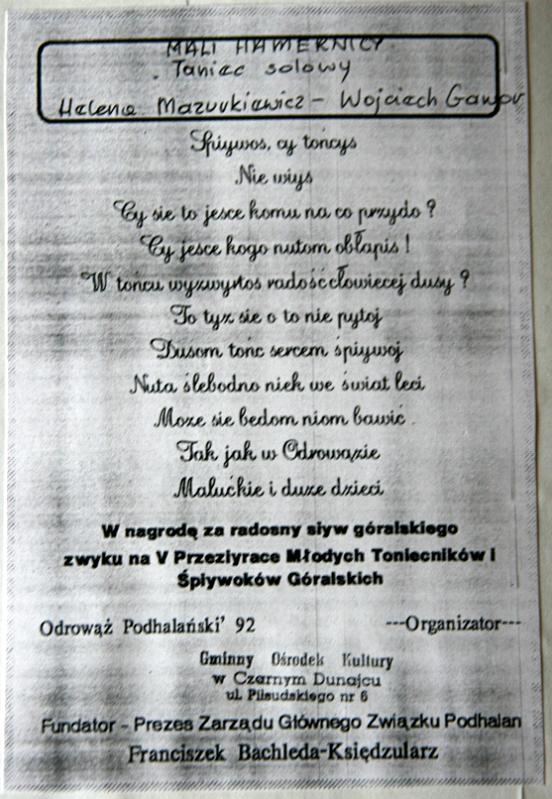 MALI HAMERNICY
Taniec solowy
Helena Mazurkiewicz - Wojciech Gawor
Śpiywos, cy tońcys
Nie wiys
Cy sie to jesce komu na co przydo ?
Cy jesce kogo nutom obłapis !
W tońcu wyzwyrtos radość cłowiecej dusy ?
To tyz sie o to nie pytoj
Dusom tońc sercem śpiywoj
Nuta ślebodno niek we świat leci
Moze sie bedom niom bawić .
Tak jak w Odrowązie
Malućkie i duze dzieci
W nagrodę za radosny siyw góralskiego
zwyku na V Przeziyrace Młodych Toniecników i
Śpiywoków Góralskich
Odrowąż Podhalański' 92 ---Organizator---
Gminny Ośrodek Kultury
w Czarnym Dunajcu
ul. Piłsudskiego nr 6
Fundator - Prezes Zarządu Głównego Związku Podhalan
Franciszek Bachleda-Księdzularz